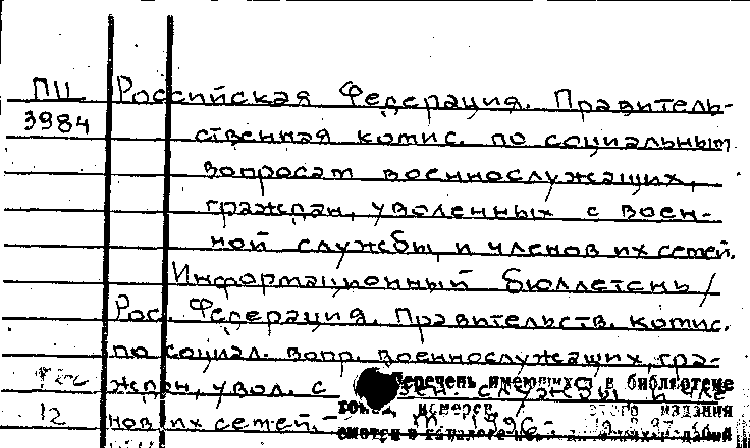 ПII Российская Федерация. Правитель-
3984 ственная комис. по социальным
вопросам военнослужащих,
граждан, уволенных с воен-
ной службы, и членов их семей.
Информационный бюллетень /
Рос. Федерация. Правительств. комис.
по социал. вопр. военнослужащих, гра-
ждан, увол. с воен. службы, и чле
Перечень имеющихся в библиотеке
12 нов их семей. - М., 1996. -
номеров этого издания
смотри в каталоге